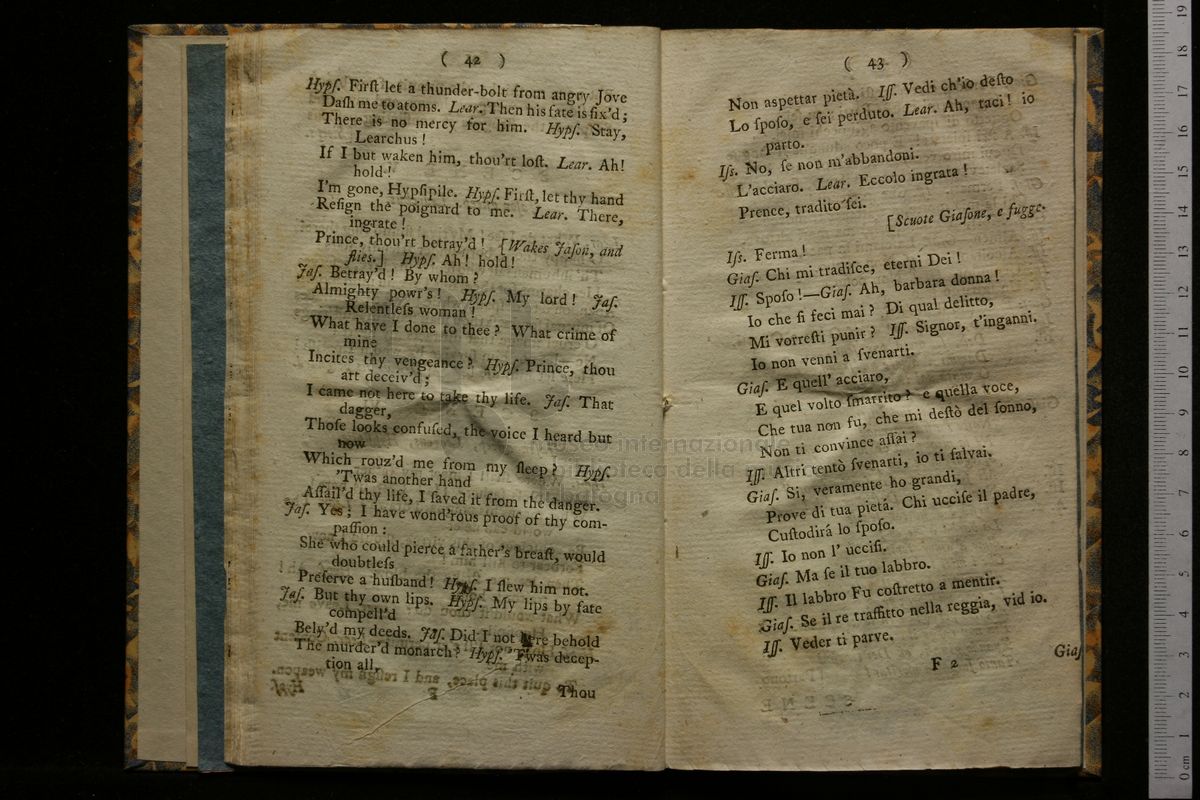 ( 42 )
Hypſ. Firſt let a thunder-bolt from angry Jove
Daſh me to atoms. Lear. Then his fate is fix'd;
There is no mercy for him. Hypſ. Stay,
Learchus!
If I but waken him, thou'rt loſt. Lear. Ah!
hold!
I'm gone, Hypſipile. Hypſ. Firſt, let thy hand
Reſign the poignard to me. Lear. There,
ingrate!
Prince, thou'rt betray'd! [Wakes Jaſon, and
flies.] Hypſ. Ah! hold!
Jaſ. Betray'd! By whom?
Almighty powr's! Hypſ. My lord! Jaſ.
Relentleſs woman!
What have I done to thee? What crime of
mine
Incites thy vengeance? Hypſ. Prince, thou
art deceiv'd;
I came not here to take thy life. Jaſ. That
dagger,
Thoſe looks confuſed, the voice I heard but
now
Which rouz'd me from my ſleep? Hypſ.
'Twas another hand
Aſſail'd thy life, I ſaved it from the danger.
Jaſ. Yes; I have wond'rous proof of thy com-
paſſion:
She who could pierce a father's breaſt, would
doubtleſs
Preſerve a huſband! Hypſ. I ſlew him not.
Jaſ. But thy own lips. Hypſ. My lips by fate
compell'd
Bely'd my deeds. Jaſ. Did I not here behold
The murder'd monarch? Hypſ. 'Twas decep-
tion all,
Thou
( 43 )
Non aspettar pietà. Iſſ. Vedi ch'io deſto
Lo ſpoſo, e ſei perduto. Lear. Ah, taci! io
parto.
Iſs. No, ſe non m'abbandoni.
L'acciaro. Lear. Eccolo ingrata!
Prence, tradito ſei.
[Scuote Giaſone, e fugge.
Iſs. Ferma!
Giaſ. Chi mi tradiſce, eterni Dei!
Iſſ. Spoſo!—Giaſ. Ah, barbara donna!
Io che ſi feci mai? Di qual delitto,
Mi vorreſti punir? Iſſ. Signor, t'inganni.
Io non venni a ſvenarti.
Giaſ. E quell' acciaro,
E quel volto ſmarrito? e quella voce,
Che tua non fu, che mi deſtò del ſonno,
Non ti convince aſſai?
Iſſ. Altri tentò ſvenarti, io ti ſalvai.
Giaſ. Si, veramente ho grandi,
Prove di tua pietá. Chi ucciſe il padre,
Cuſtodirá lo ſpoſo.
Iſſ. Io non l' ucciſi.
Giaſ. Ma ſe il tuo labbro.
Iſſ. Il labbro Fu coſtretto a mentir.
Giaſ. Se il re traffitto nella reggia, vid io.
Iſſ. Veder ti parve.
F 2
Giaſ
Museo internazionale
e biblioteca della musica
di Bologna